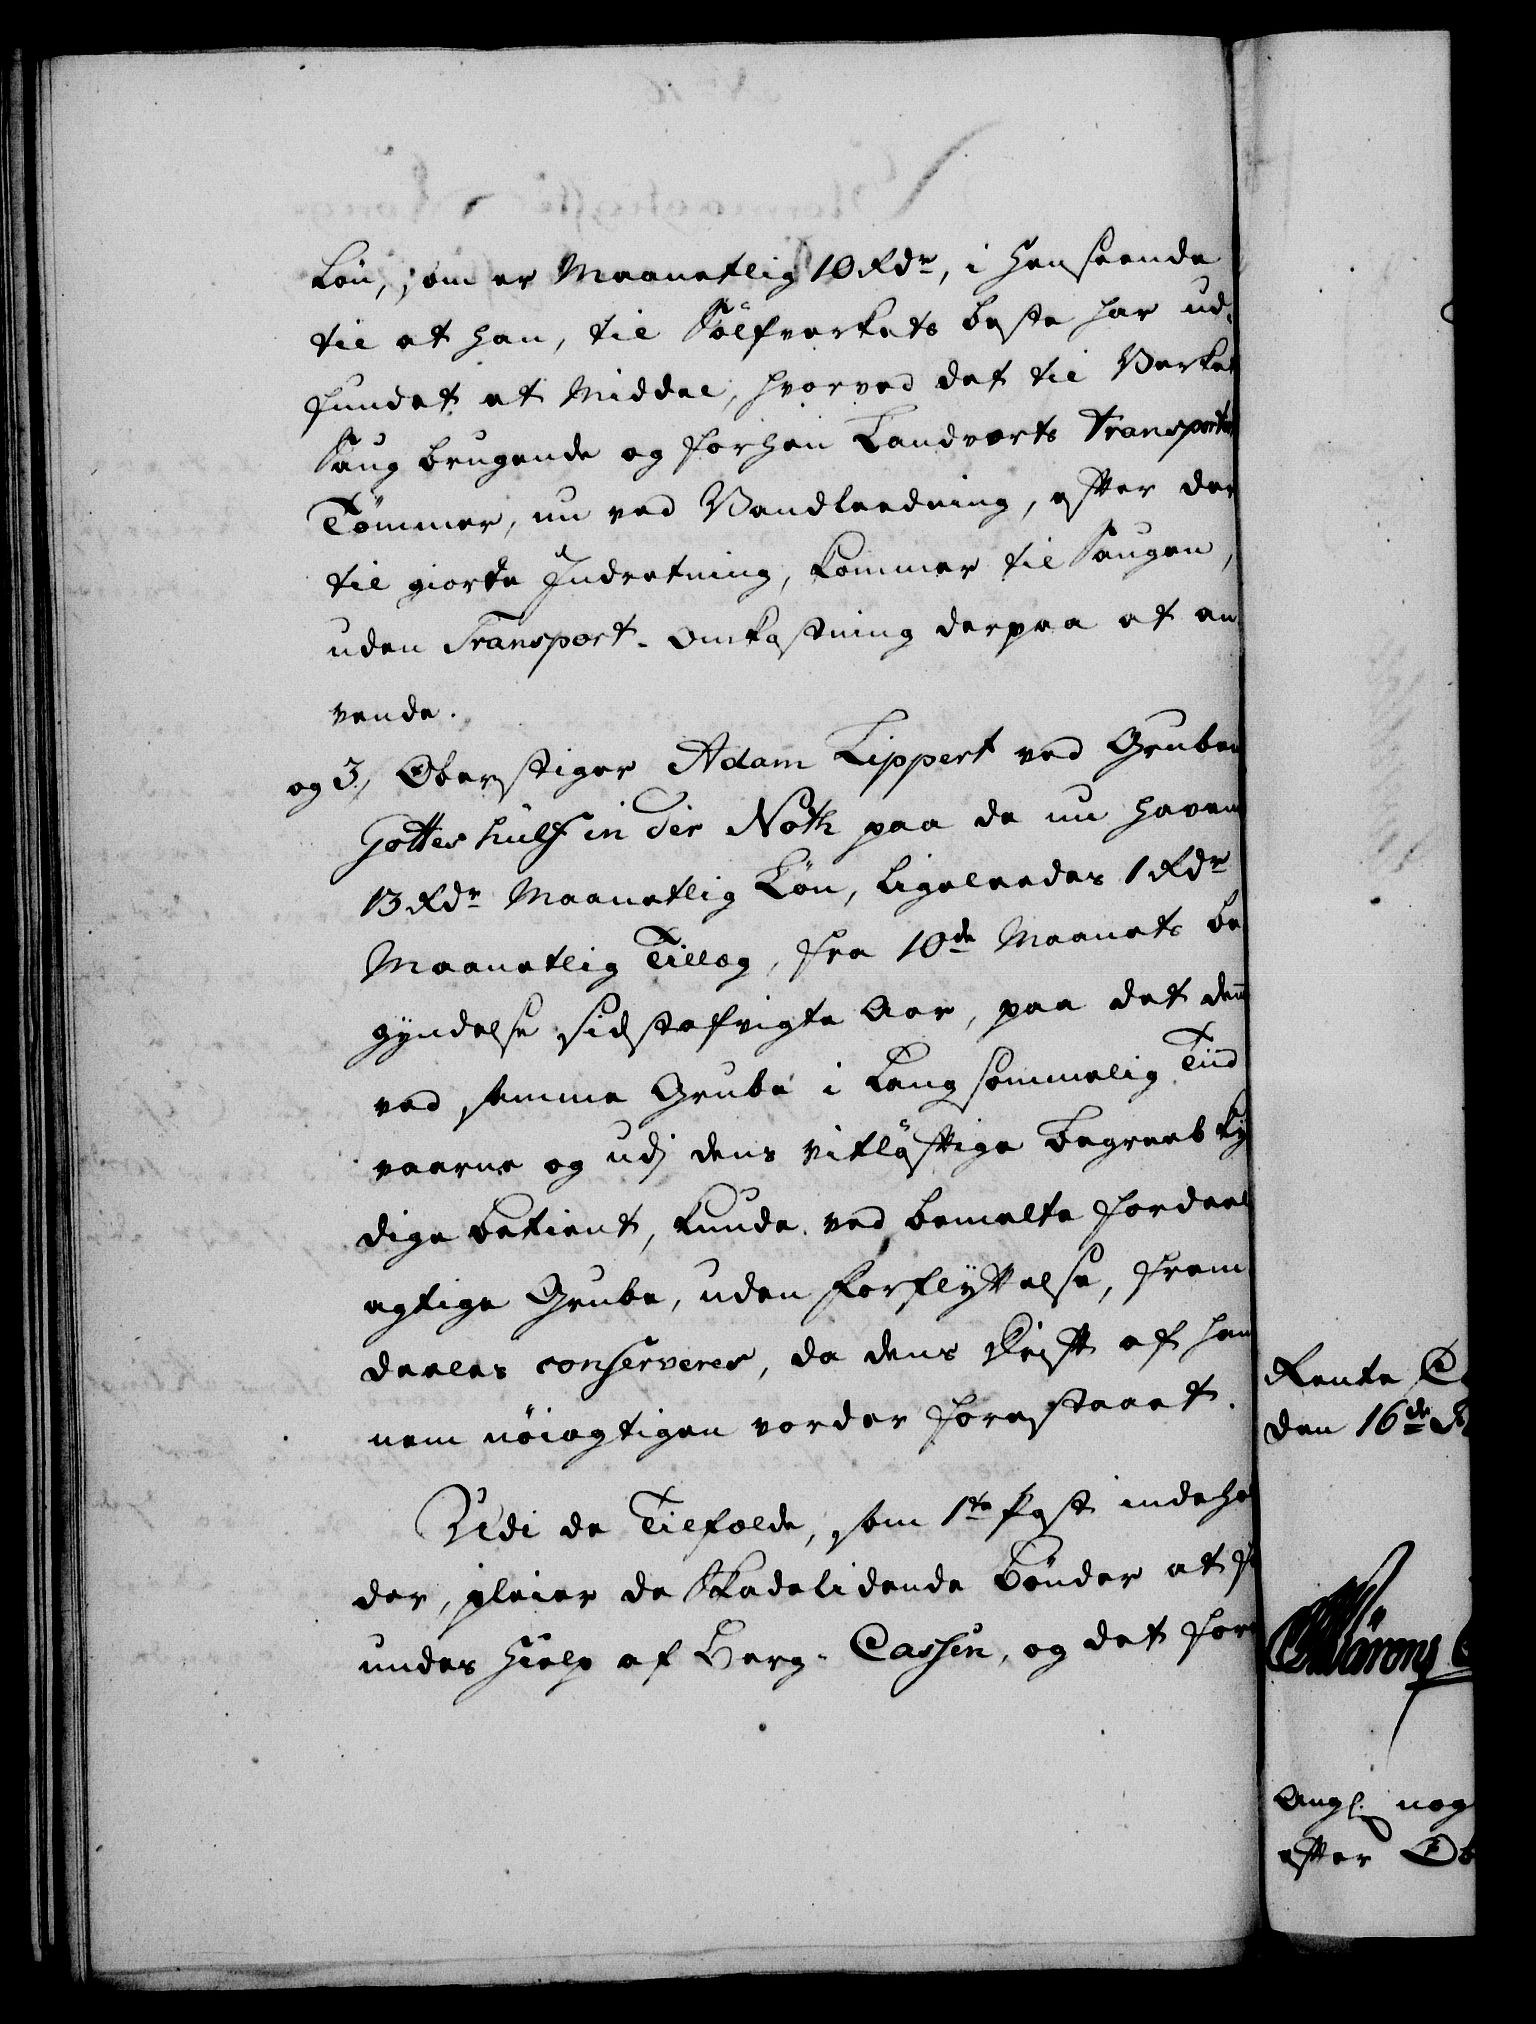 Løn, som er Maanetlig 10 Rdr, i Henseende
til at han, til Sølfverkets beste har ud-
fundet et Middel, hvorved det til Verkets
Saug brugende og forhen Landverts transporte
Tømmer, nu ved Vandleedning, efter der
til giorte Indretning, kommer til Saugen,
uden Transport-Omkostning derpaa at an
vende.
og 3, Oberstiger Adam Lippert ved Gruben
Gottes hülf in der Noth paa de nu havend
13 Rdr Maanetlig Løn, ligeleedes 1 Rdr
Maanetlig Tillæg, fra 10de Maanets be
gyndelse sidstafvigte Aar, paa det denne
ved samme Grube i langsommelig Tiid
værne og udj dens vitløftige begreeb ky
dige betient, kunde ved bemelte fordeel
agtige Grube, uden forflyttelse, frem
deeles conserveres, da dens Drift af ham
nem nøiagtigen vorder forestaaet.
Udi de Tilfælde, som 1te Post indehol
der, pleier de Skadelidende Bønder at f
undes Hielp af Berg-Cassen, og det for
Rente C
den 16de
Angl. nog
efter Ob